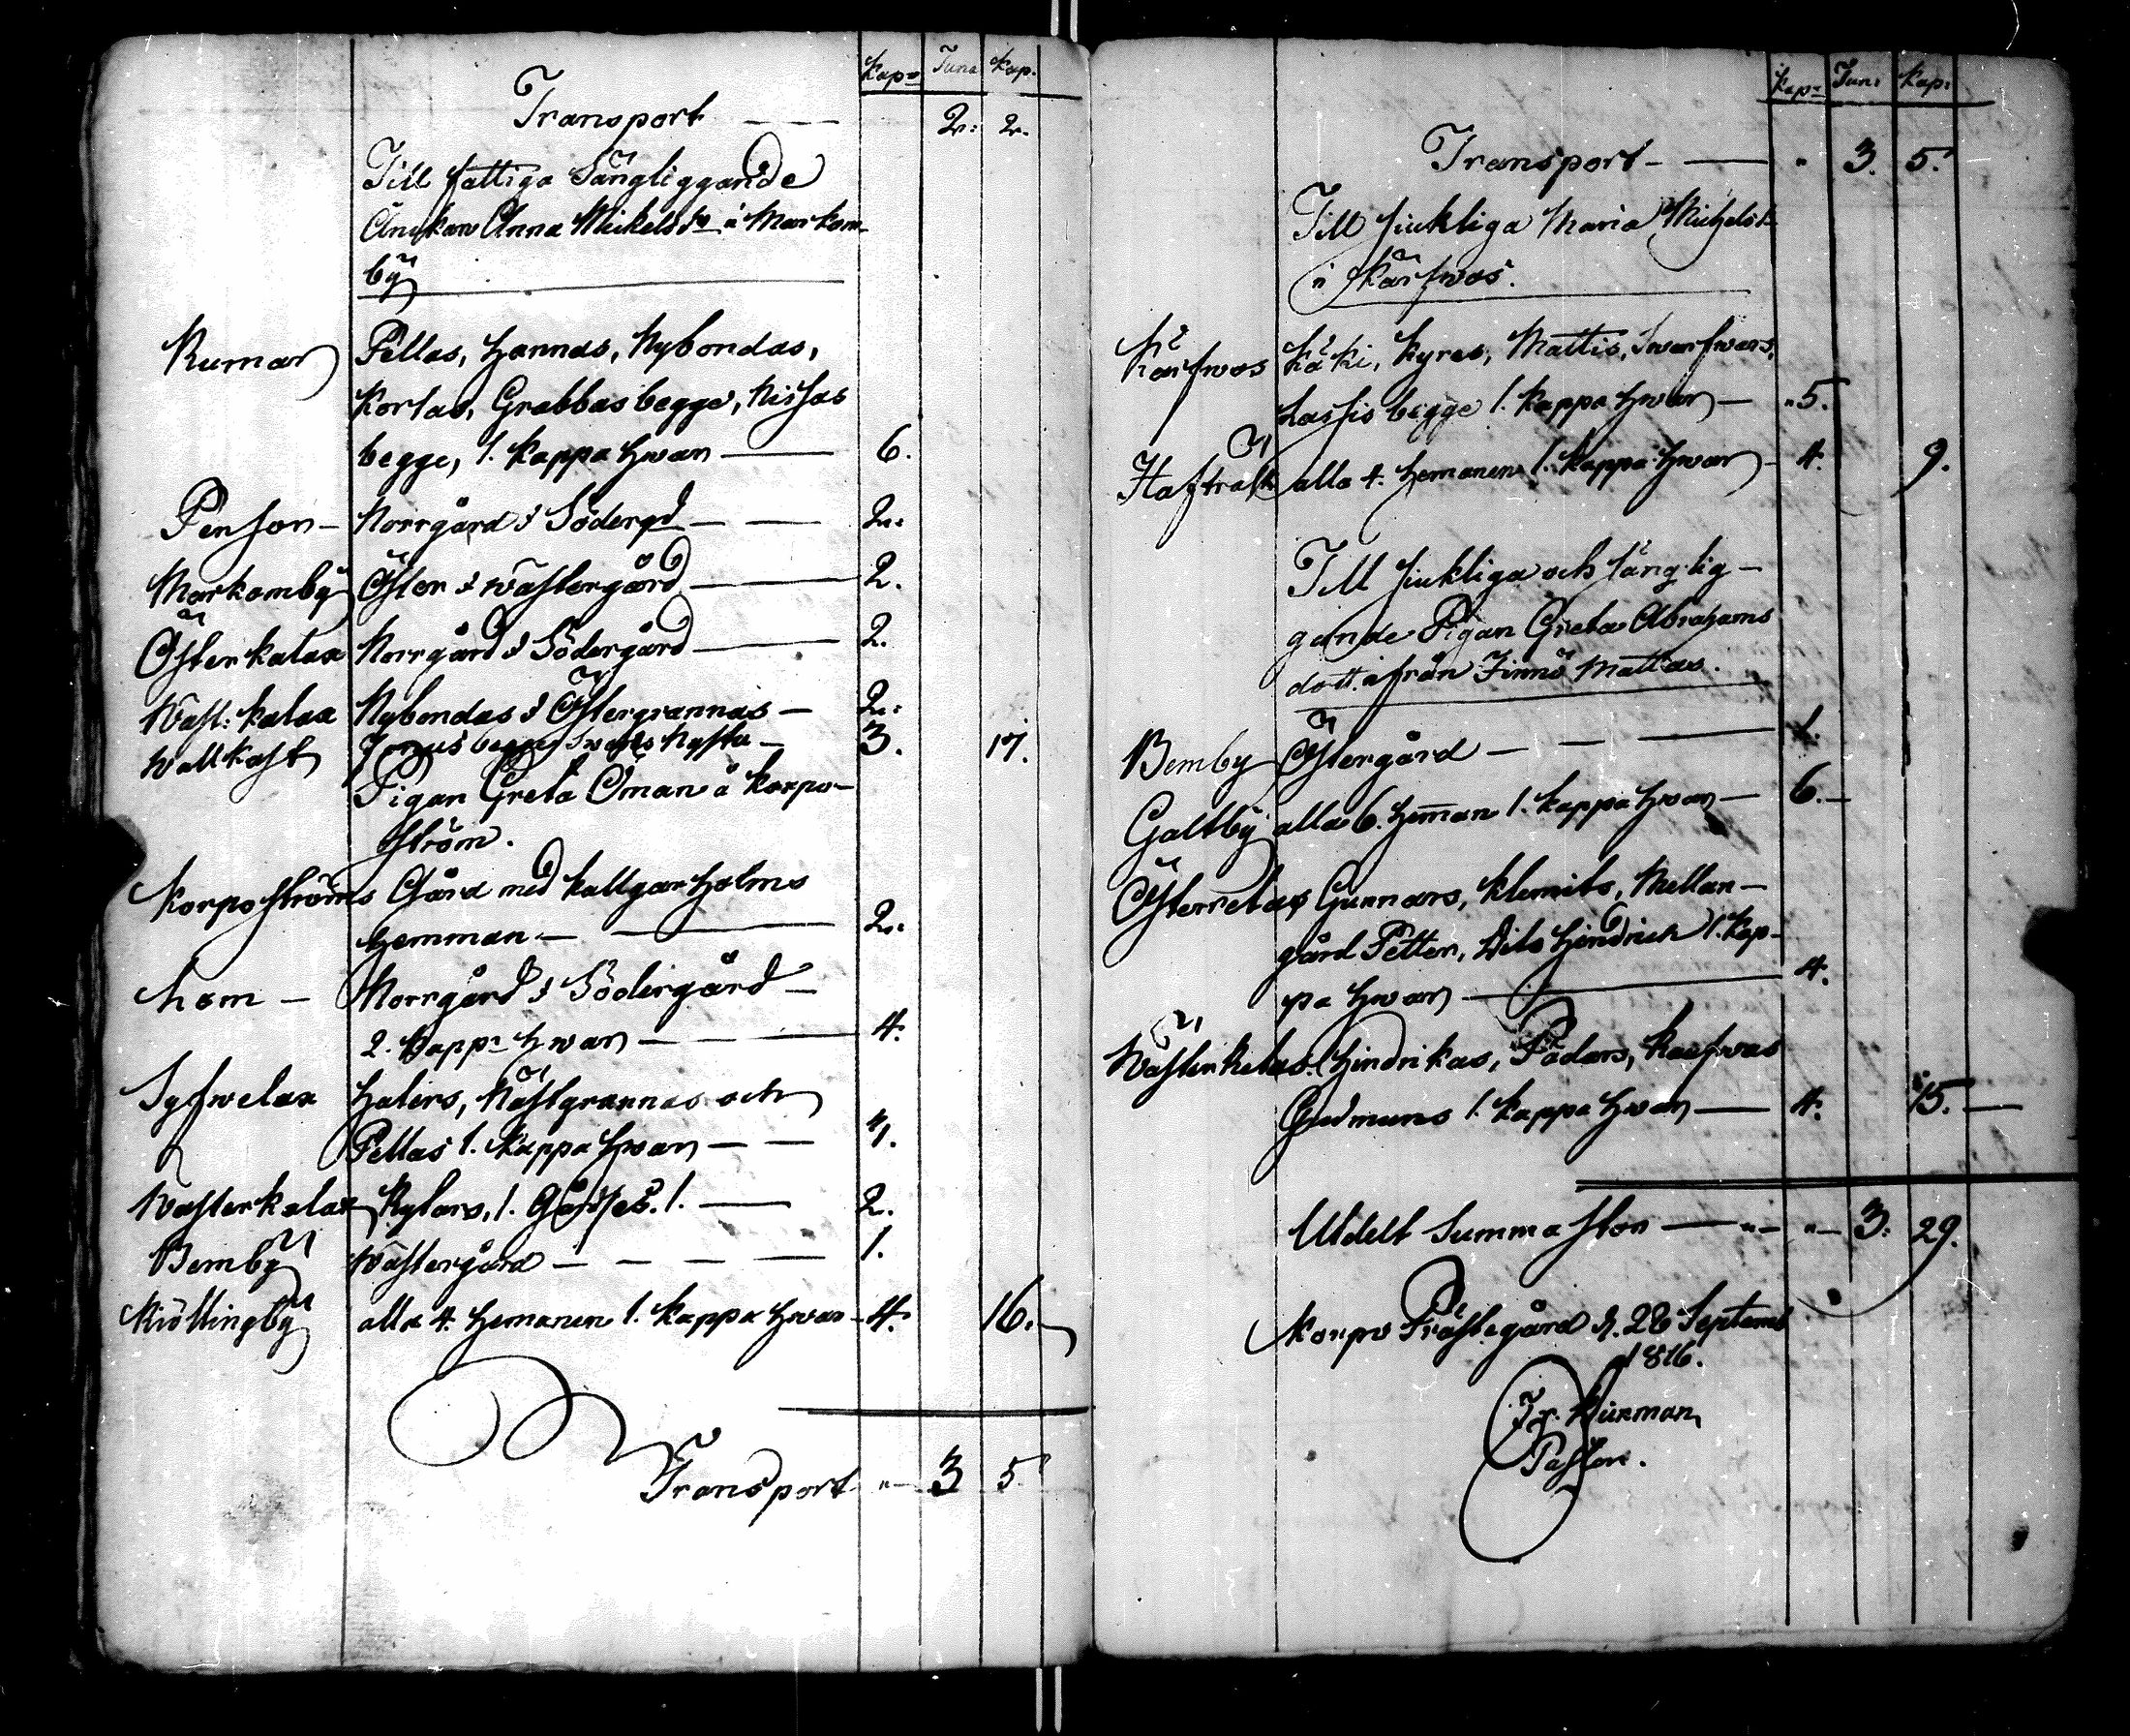 Kapr Tuna Kap.
Transport 2. 2.
Till fattiga Sängliggande
Änckan Anna Mickels Dr i Markom-
by
Rumar Pellas, Hannas, Nybondas,
Kortas, Grabbas begge, Nissas
begge, 1. Kappa hwar 6.
Penson - Norrgård & Södergd 2.
Markomby Öster & Wästergård 2.
Österkalax Norrgård & Södergård 2.
Wäst: kalax Nybondas & Östergrannas 2.
Wattkast begge Nystu 3. 17.
Pigan Greta Öman i Korpo-
ström.
Korpoströms Gård med kallgarholms
hemman 2.
Lom - Norrgård & Södergård
2. Kappr hwar 4.
Syfwelax Halers, Nästgrannas och
Pellas 1. Kappa hwar
Wästerkalax Rylars, 1. 1. 2.
Bemby Wästergård 1.
Kiöttingby alla 4. hemanen 1. Kappa hwar 4. 16.
Transport 3 5.
Kapr Tun: Kap:
Transport 3. 5.
Till siukliga Maria Michels
i Kärfwos.
Kärfwos Käki, Kyres, Mattis, Swarfwars,
Lassis begge 1. Kappa hwar 5.
Haftrask alla 4. hemanen 1. Kappa hwar 4. 9.
Till siukliga och sänglig-
gande Pigan Greta Abrahams
dott. ifrån Finnö Mattas.
Bemby Östergård 1.
Galtby alla 6. heman 1. Kappa hwar 6.
Österretas Gunnars, Klemits, Mellan-
gård Petter, Dito Hindrich 1. Kap-
pa hwar 4.
Hindrikas, Päders,
Gudmuns 1. Kappa hwar 4. 15.
Utdelt Summa stor 3. 29.
Korpo Prästegård d. 28 Septemb
1816.
Fr.
Pastor.